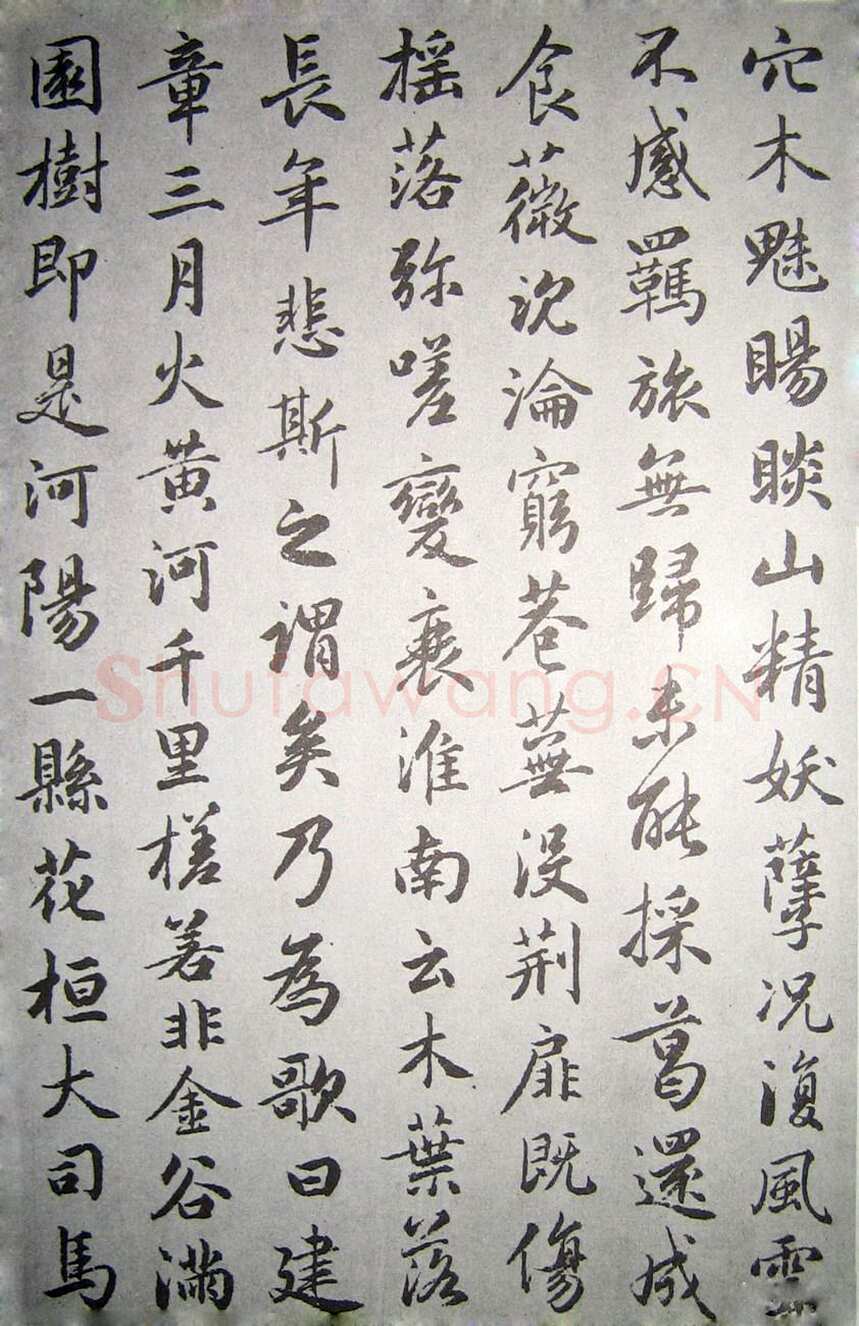 穴木魅睗睒山精妖孽况復風雲
不感羈旅無歸未能採葛還成
食薇沉淪窮巷蕪没荆扉既傷
摇落弥嗟變衰淮南云木葉落
長年悲斯之謂矣乃為歌曰建
章三月火黄河千里槎若非金谷滿
園樹即是河陽一縣花桓大司馬
Shufawang.CN